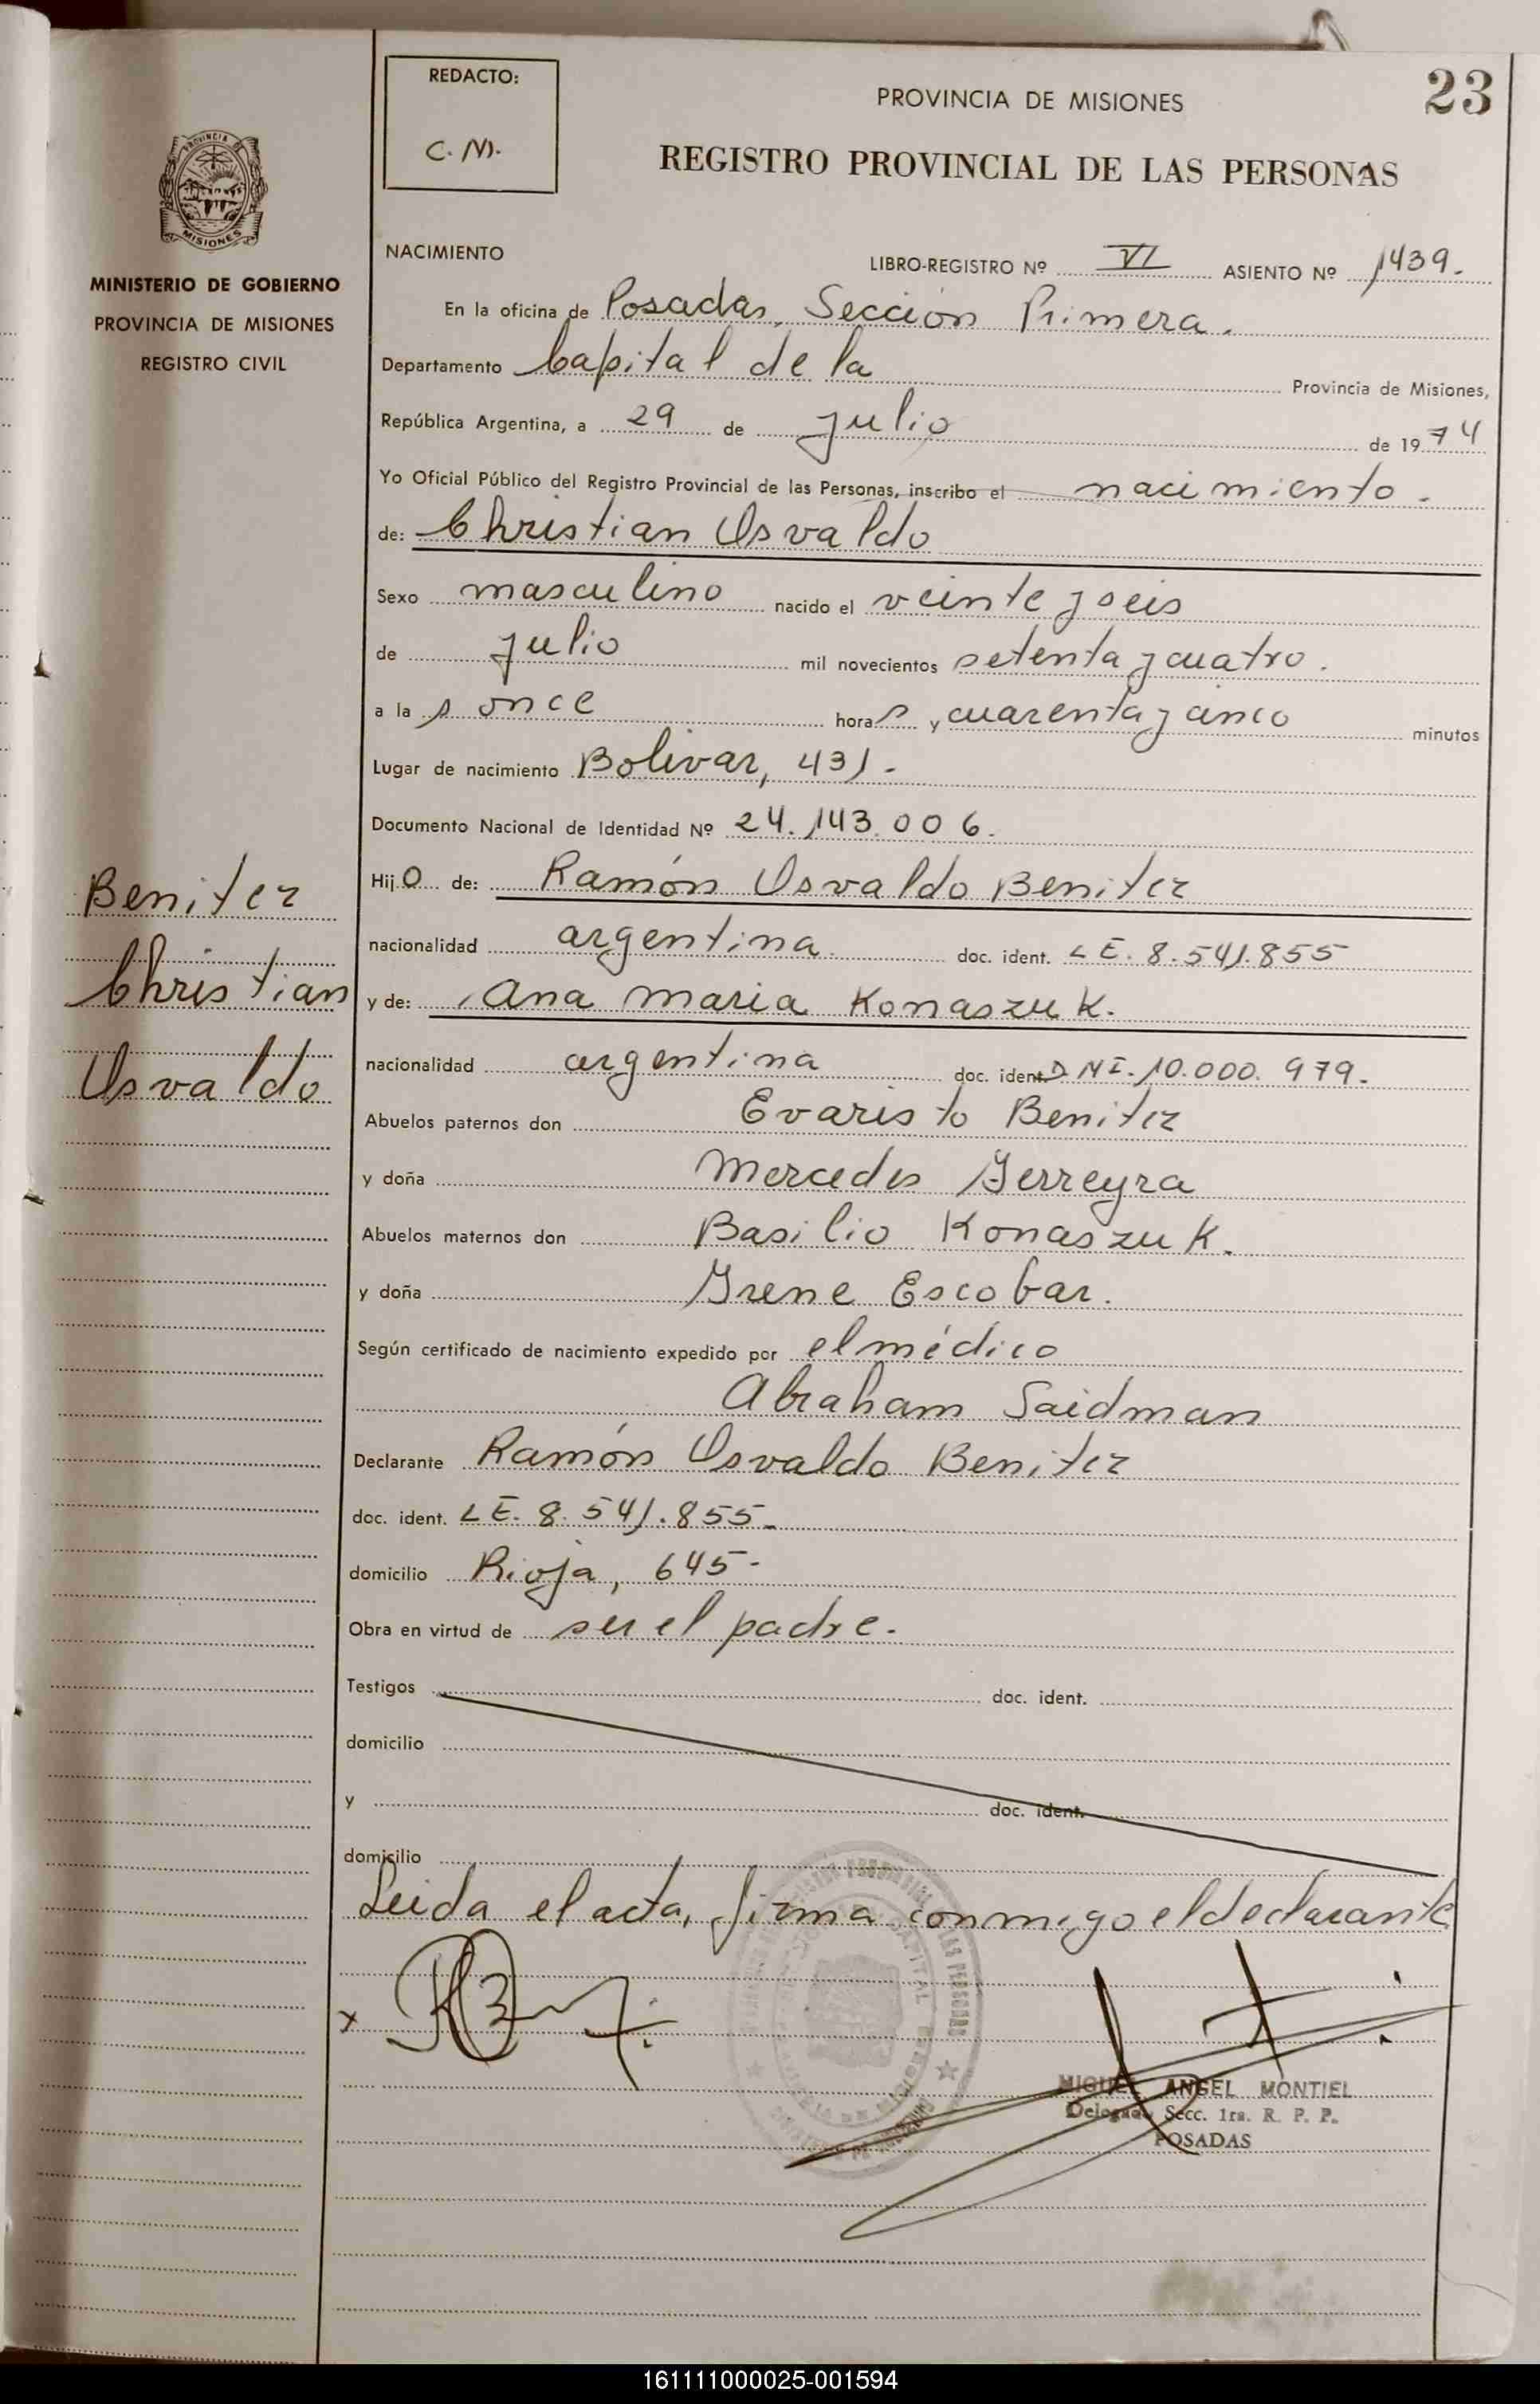 REDACTO:
C. M.
23
PROVINCIA DE MISIONES
REGISTRO PROVINCIAL DE LAS PERSONAS
PROVINCIA DE
MISIONES
MINISTERIO DE GOBIERNO
PROVINCIA DE MISIONES
REGISTRO CIVIL
NACIMIENTO
LIBRO-REGISTRO Nº VI ASIENTO Nº 1439.
En la oficina de Posadas, Sección Primera.
Departamento Capital de la Provincia de Misiones,
República Argentina, a 29 de julio de 1974
Yo Oficial Público del Registro Provincial de las Personas, inscribo el nacimiento.
de: Christian Osvaldo
Sexo masculino nacido el veinte y seis
de julio mil novecientos setenta y cuatro.
a las once horas y cuarenta y cinco minutos
Lugar de nacimiento Bolivar, 431.-
Documento Nacional de Identidad Nº 24.143.006.
Hijo de: Ramón Osvaldo Benitez
nacionalidad argentina. doc. ident. LE. 8.541.855
y de: Ana Maria Konaszuk.
nacionalidad argentina doc. ident. DNI. 10.000.979.
Abuelos paternos don Evaristo Benitez
y doña Mercedes Ferreyra
Abuelos maternos don Basilio Konaszuk.
y doña Irene Escobar.
Según certificado de nacimiento expedido por el médico
Abraham Saidman
Declarante Ramón Osvaldo Benitez
doc. ident. LE. 8.541.855.-
domicilio Rioja, 645-
Obra en virtud de ser el padre.-
Testigos doc. ident.
domicilio
y doc. ident.
domicilio
Leida el acta, firma conmigo el declarante
Benitez
Christian
Osvaldo
x
MIGUEL ANGEL MONTIEL
Delegado Secc. 1ra. R. P. P.
POSADAS
161111000025-001594